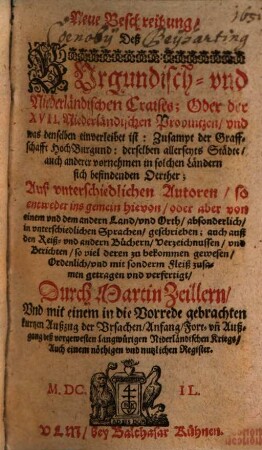 Neue Beschreibung/
Deß
BUrgundisch- vnd
Niederländischen Craises; Oder der
XVII. Niederländischen Provintzen/ vnd
was denselben einverleibet ist: Zusampt der Graff-
schafft HochBurgund: derselben allerseyts Städte/
auch anderer vornehmen in solchen Ländern
sich befindenden Oerther;
Auß vnterschiedlichen Autoren/ so
entweder ins gemein hievon/ oder aber von
einem vnd dem andern Land/ vnd Orth/ absonderlich/
in vnterschiedlichen Sprachen/ geschrieben; auch auß
den Reiß- vnd andern Büchern/ Verzeichnussen/ vnd
Berichten/ so viel deren zu bekommen gewesen/
Ordenlich/ vnd mit sonderm Fleiß zusa-
men getragen vnd verfertigt/
Durch Martin Zeillern/
Vnd mit einem in die Vorrede gebrachten
kurtzen Außzug der Vrsachen/ Anfang/ Fort- vñ Auß-
gang deß vorgewesten langwürigen Niderländischen Kriegs/
Auch einem nöthigen vnd nutzlichen Register.
M. DC. IL.
VLM/ bey Balthasar Kühnen.